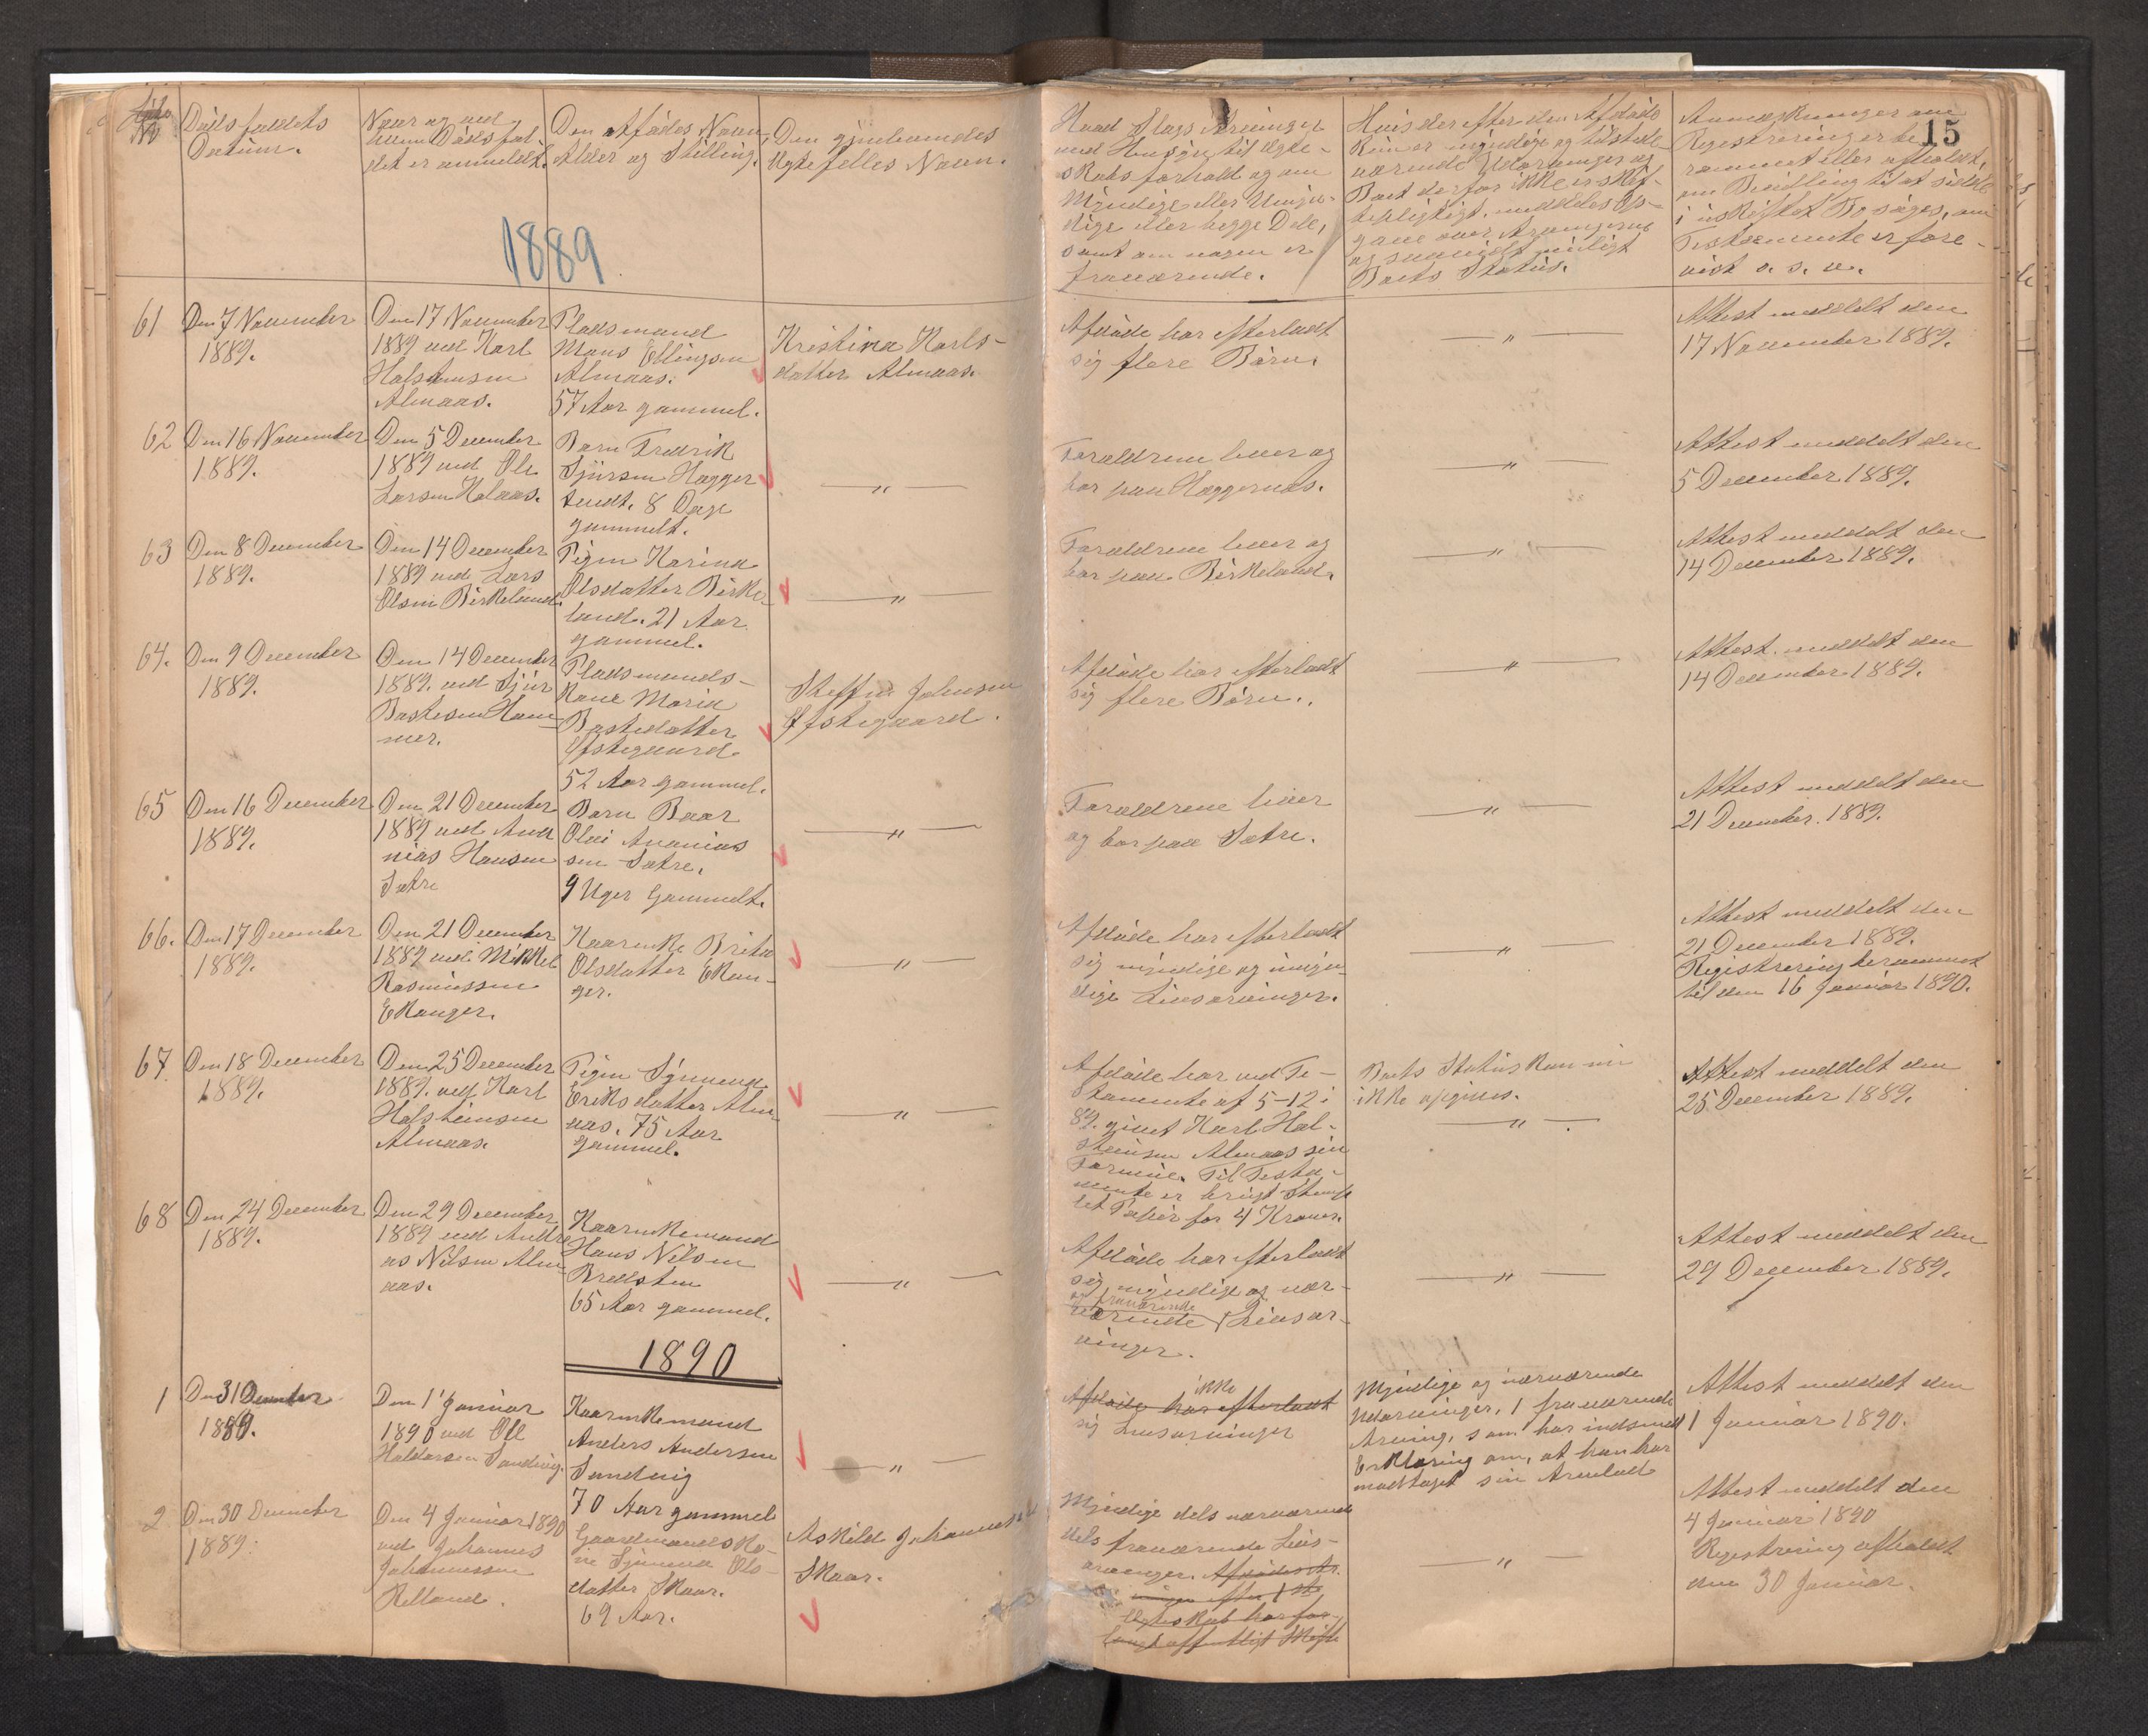 15
Løbe
No
Dødsfaldets
Datum.
Naar og ved
hvem Dødsfal-
det er anmeldt.
Den Afdødes Navn,
Alder og Stilling.
Den gjenlevendes
Ægtefælles Navn.
Hvad Slags Arvinger
med Hensyn til Ægte-
skabsforhold og om
Myndige eller Umyn-
dige eller begge Dele,
samt om nogen er
fraværende.
Hvis der efter den Afdøde
kun er myndige og tilstede-
værende Udarvinger og
Boet derfor ikke er skif-
tepligtigt, meddeles Op-
gave over Arvingerne
og saavidt muligt
Boets Status.
Anmærkninger om
Registrering er be-
rammet eller afholdt,
om Bevilling til at sidde
i uskiftet Bo søges, om
Testamente er fore-
vist o. s. v.
1889
61
Den 7 November
1889.
Den 17 November
1889 ved Karl
Halstensen
Almaas.
Pladsmand
Mons Ellingsen
Almaas.
57 Aar gammel.
Kristina Karls-
datter Almaas.
Afdøde har efterladt
sig flere Børn.
— " —
Attest meddelt den
17 November 1889.
62
Den 16 November
1889.
Den 5 December
1889 ved Ole
Larsen Kalaas.
Barn Fredrik
Sjursen Hægger
tundt. 8 Dage
gammelt.
— " —
Forældrene lever og
bor paa Hæggernæs.
— " —
Attest meddelt den
5 December 1889.
63
Den 8 December
1889.
Den 14 December
1889 ved Lars
Olsen Birkeland.
Pigen Karina
Olsdatter Birke-
land. 21 Aar
gammel.
— " —
Forældrene lever og
bor paa Birkeland.
— " —
Attest meddelt den
14 December 1889.
64.
Den 9 December
1889.
Den 14 December
1889. ved Sjur
Bastesen Ham-
mer.
Pladsmands-
kone Maria
Bastedatter
Øfstegaard.
52 Aar gammel.
Steffen Johnsen
Øfstegaard.
Afdøde har efterladt
sig flere Børn.
— " —
Attest meddelt den
14 December 1889.
65
Den 16 December
1889.
Den 21 December
1889 ved Ana
nias Hansen
Sætre
Barn Baar
Olai Ananias
sen Sætre.
9 Uger gammelt.
— " —
Forældrene lever
og bor paa Sætre.
— " —
Attest meddelt den
21 December. 1889.
66.
Den 17 December
1889.
Den 21 December
1889 ved Mikkel
Rasmussen
Ekanger.
Kaarenke Brita
Olsdatter Ekan-
ger.
— " —
Afdøde har efterladt
sig myndige og umyn-
dige Livsarvinger.
— " —
Attest meddelt den
21 December 1889.
Registrering berammet
til den 16 Januar 1890.
67
Den 18 December
1889.
Den 25 December
1889. ved Karl
Halsteinsen
Almaas.
Pigen Synneva
Eriksdatter Alm-
aas. 75 Aar
gammel.
— " —
Afdøde har ved Te-
stamente af 5-12 i
89. givet Karl Hal-
steinsen Almaas sin
Formue. Til Testa-
mente er brugt Stemp
let Papir for 4 Kroner.
Boets Status kan nu
ikke opgives.
— " —.
Attest meddelt den
25 December 1889.
68
Den 24 December
1889.
Den 29 December
1889 ved Andre
as Nilsen Alm
aas.
Kaarenkemand
Hans Nilsen
Bredsten
65 Aar gammel.
— " —
Afdøde har efterladt
sig myndige og nær-
og fraværende
værende Livsar-
vinger.
— " —
Attest meddelt den
29 December 1889.
1890
1
Den 31 December
1889.
Den 1' Januar
1890 ved Ole
Haldorsen Sandvig.
Kaarenkemand
Anders Andersen
Sandvig
70 Aar gammel
— " —
ikke
Afdøde har efterladt
sig Livsarvinger
Myndige og nærværende
Udarvinger, 1 fraværende
Arving, som har indsendt
Erklæring om, at han har
modtaget sin Arvelod
Attest meddelt den
1 Januar 1890.
2
Den 30 December
1889.
Den 4 Januar 1890
ved Johannes
Johannessen
Helland.
Gaardmandsko-
ne Synneva Ols-
datter Skaar.
69 Aar.
Askild Johannesen
Skaar.
Myndige dels nærværende
dels fraværende Livs-
arvinger. Afdødes Ar-
vinger efter 1ste
Ægteskab har for-
langt offentligt Skifte
— " —
Attest meddelt den
4 Januar 1890
Registrering afholdt
den 30 Januar.